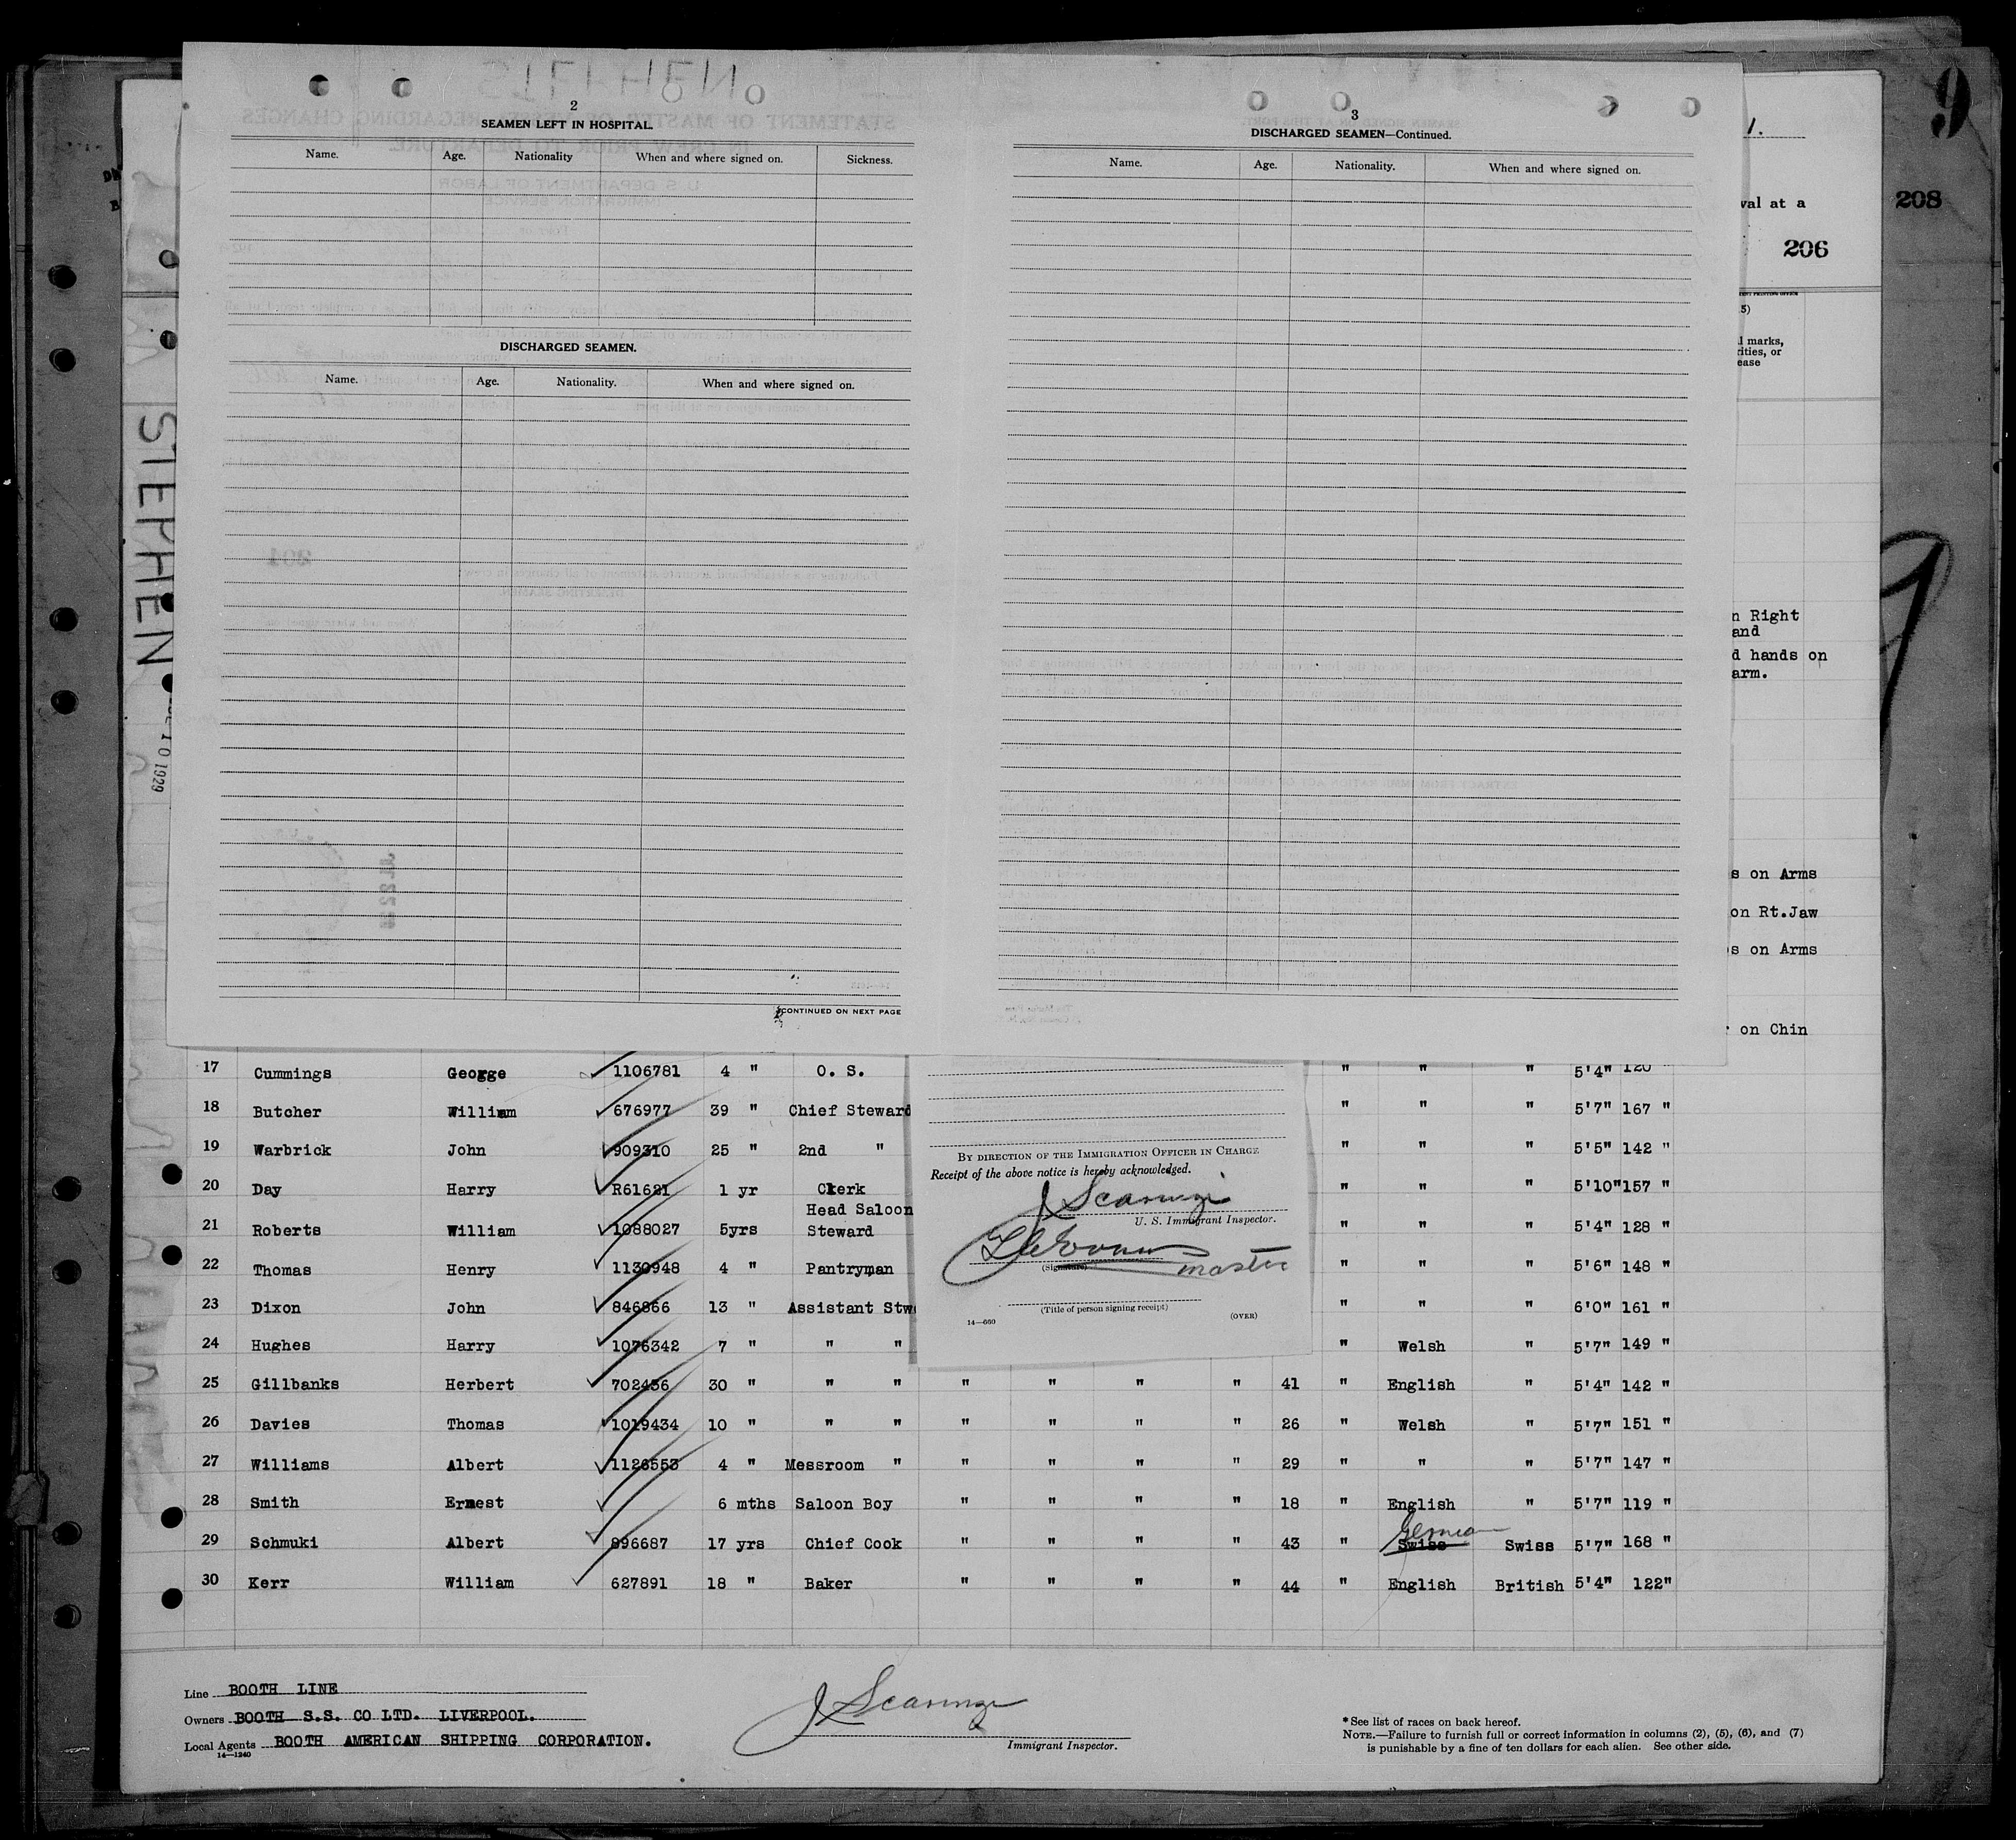 9
208
1.
val at a
206
3)
l marks,
rities, or
ease
STEPHEN
10 1929
2
SEAMEN LEFT IN HOSPITAL.
Name. Age. Nationality When and where signed on. Sickness.
DISCHARGED SEAMEN.
Name. Age. Nationality. When and where signed on.
CONTINUED ON NEXT PAGE
3
DISCHARGED SEAMEN—Continued.
Name. Age. Nationality. When and where signed on.
n Right
and
d hands on
arm.
s on Arms
on Rt.Jaw
s on Arms
on Chin
17 Cummings George 1106781 4 " O. S. " " " 5'4" 120 "
18 Butcher William 676977 39 " Chief Steward " " " 5'7" 167 "
19 Warbrick John 909310 25 " 2nd " " " " 5'5" 142 "
20 Day Harry R61621 1 yr Clerk " " " 5'10" 157 "
21 Roberts William 1088027 5yrs Head Saloon Steward " " " 5'4" 128 "
22 Thomas Henry 1130948 4 " Pantryman " " " 5'6" 148 "
23 Dixon John 846866 13 " Assistant Stw " " " 6'0" 161 "
24 Hughes Harry 1076342 7 " " " " Welsh " 5'7" 149 "
25 Gillbanks Herbert 702436 30 " " " " " " " 41 " English " 5'4" 142 "
26 Davies Thomas 1019434 10 " " " " " " " 26 " Welsh " 5'7" 151 "
27 Williams Albert 1126553 4 " Messroom " " " " " 29 " " " 5'7" 147 "
28 Smith Ernest 6 mths Saloon Boy " " " " 18 " English " 5'7" 119 "
29 Schmuki Albert 896687 17 yrs Chief Cook " " " " 43 " German Swiss Swiss 5'7" 168 "
30 Kerr William 627891 18 " Baker " " " " 44 " English British 5'4" 122"
BY DIRECTION OF THE IMMIGRATION OFFICER IN CHARGE
Receipt of the above notice is hereby acknowledged.
J Scaringi
U. S. Immigrant Inspector.
(Signature) master
(Title of person signing receipt)
14—660 (OVER)
Line BOOTH LINE
Owners BOOTH S.S. CO LTD. LIVERPOOL.
Local Agents BOOTH AMERICAN SHIPPING CORPORATION.
14—1240
J Scaringi
Immigrant Inspector.
*See list of races on back hereof.
NOTE.—Failure to furnish full or correct information in columns (2), (5), (6), and (7)
is punishable by a fine of ten dollars for each alien. See other side.